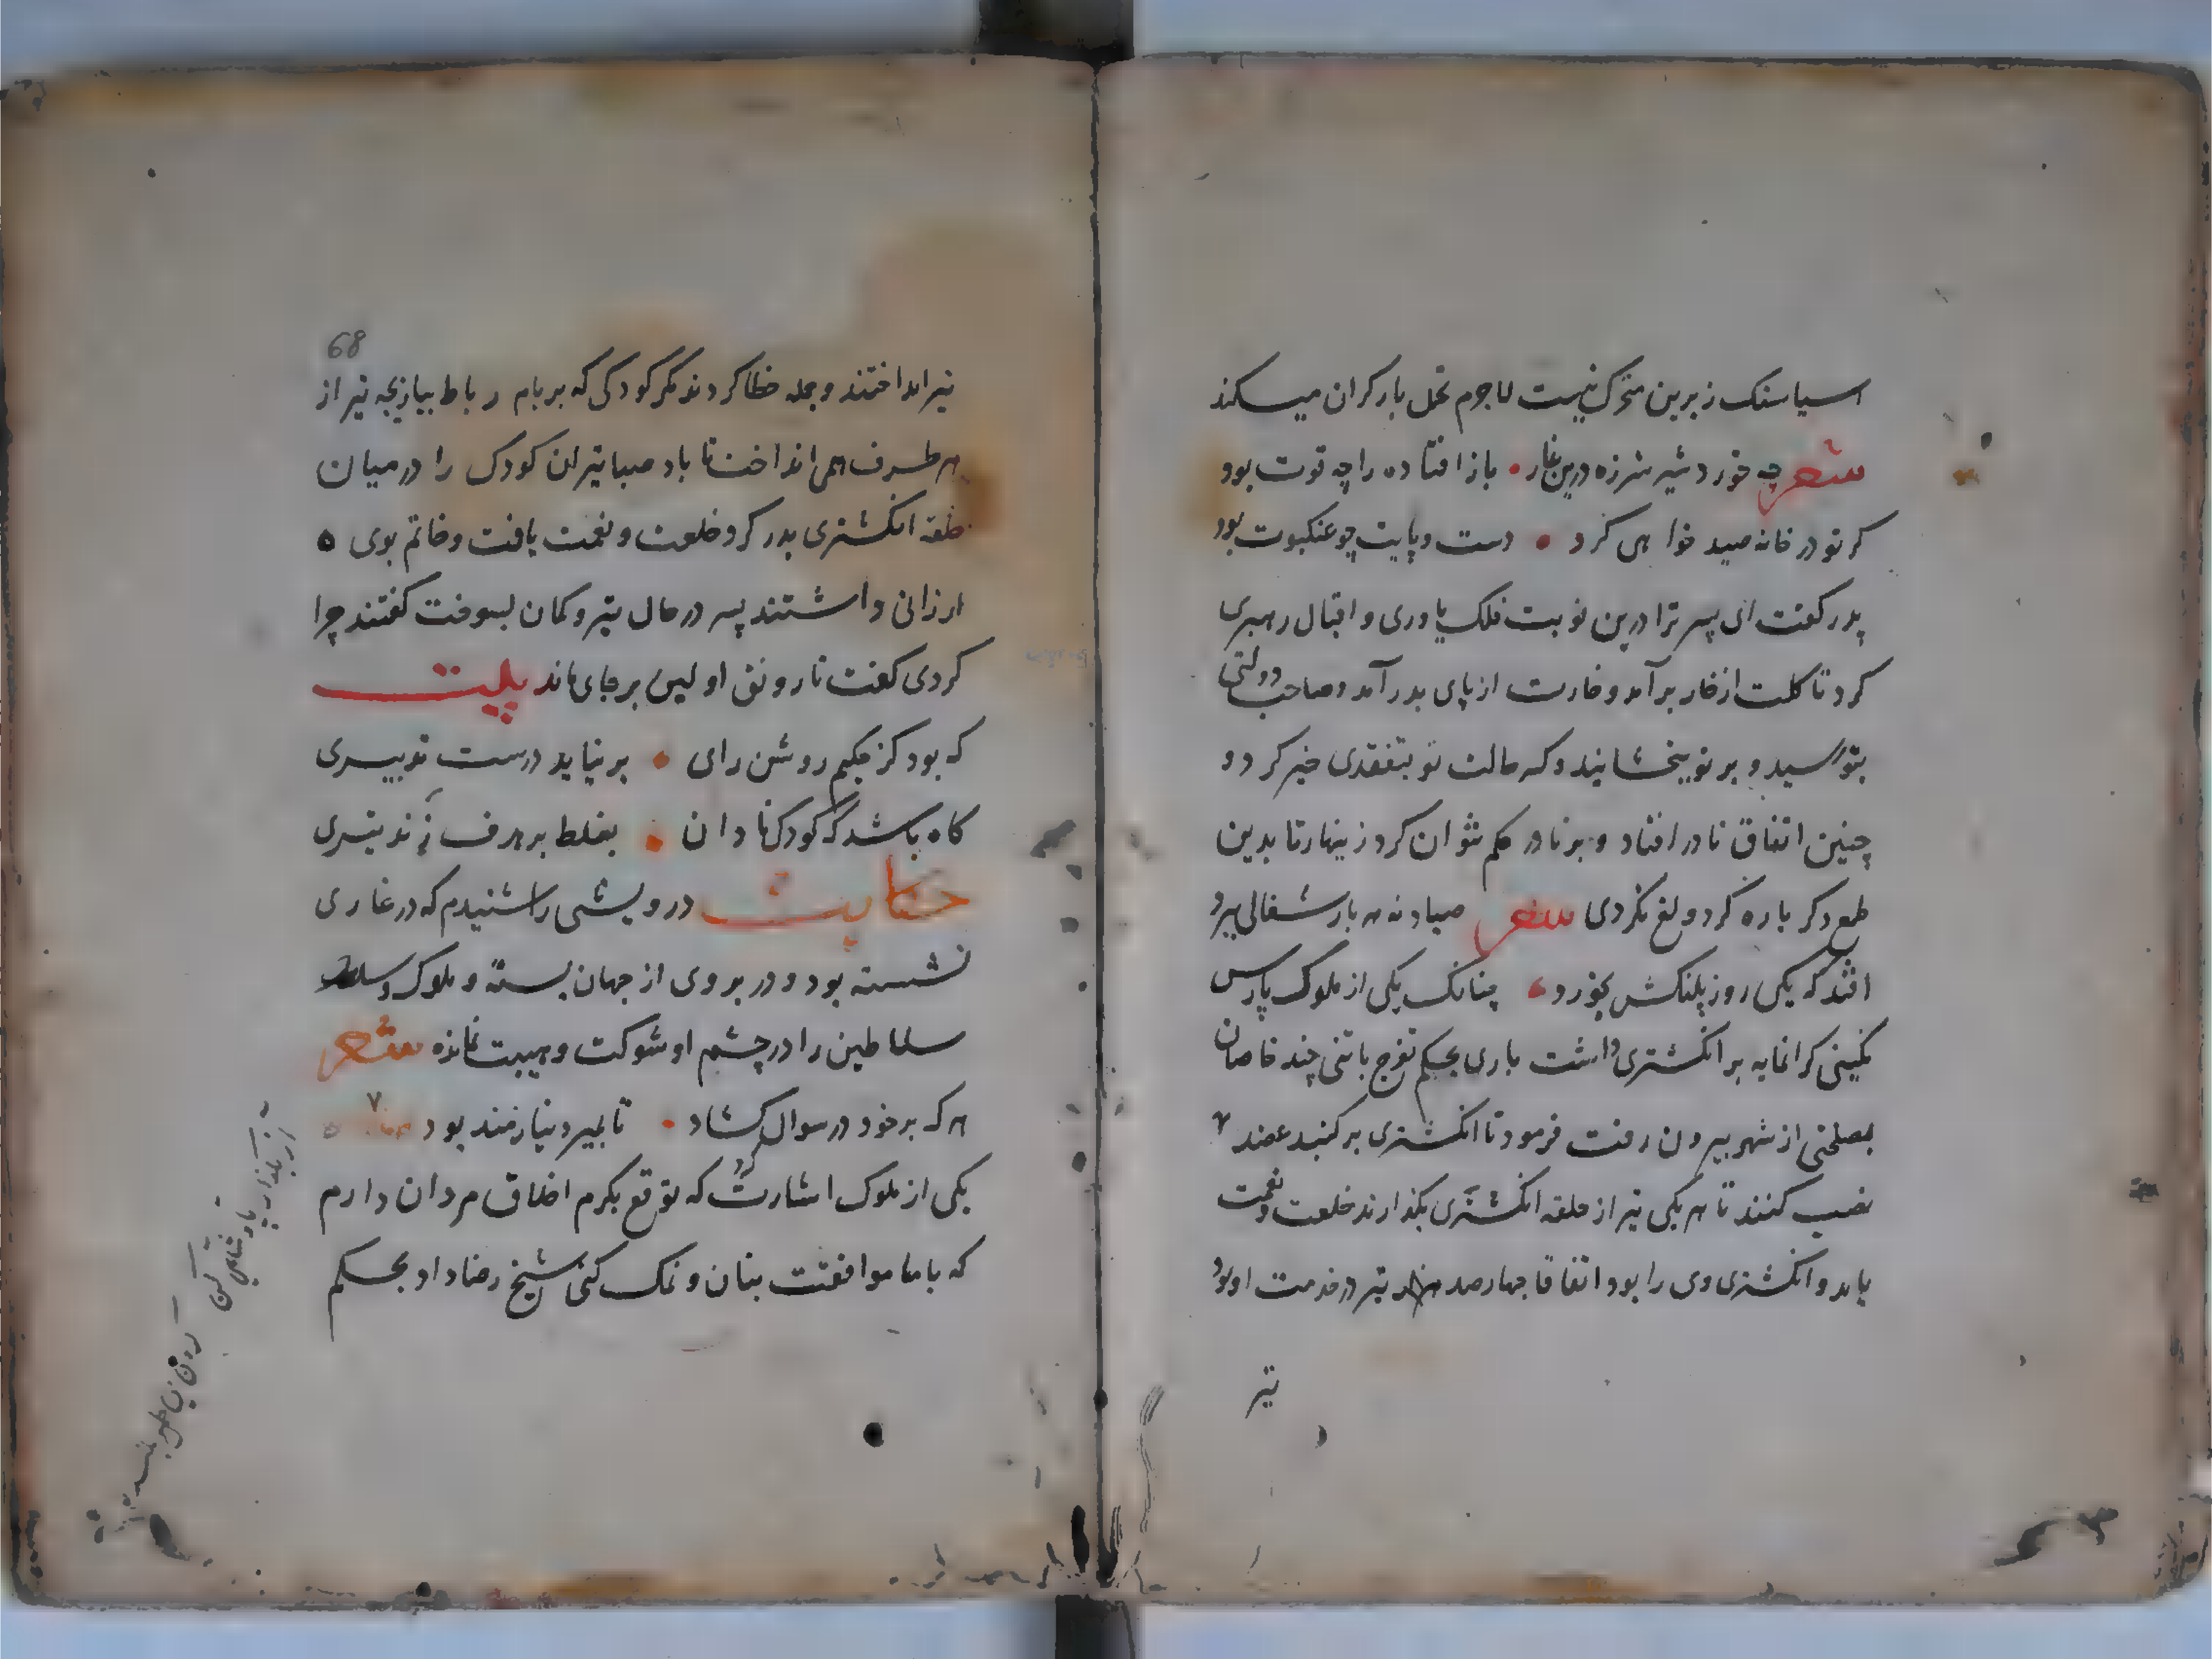 اسیاسنک زیرین متحرک نیست لاجرم تحمل بار کران میسکند
شعر چه خورد شیر شرزه درین غار • باز افتاده را چه قوت بود
کر تو در خانه صید خواهی کرد • دست و پایت چو عنکبوت بود
پدر کفت ای پسر ترا درین نوبت فلک یاوری و اقبال رهبری
کرد تا کلت از خار برآمد و خارت از پای بدر آمد و صاحب دولتی
بتو رسید و بر تو ببخشانید و کسر حالت تو بتفقدی خیر کرد و
چنین اتفاق نادر افتاد و بر نادر حکم نتوان کرد زینهار تا بدین
طمع دکر باره کرد ولغ نکردی شعر صیاد نه هر بار شغالی ببرد
افتد که یکی روز پلنکش بخورد • چنانک یکی از ملوک پارس
نکینی کرانمایه بر انکشتری داشت باری بحکم تفرج با تنی چند خاصان
بمصلحتی از شهر بیرون رفت فرمود تا انکشتری بر کنبد عضد
نصب کنند تا هر یکی تیر از حلقه انکشتری بکذارند خلعت و نعمت
یابد و انکشتری وی را بود اتفاقا چهارصد تیر در خدمت او بود
تیر
68
تیر انداختند و جمله خطا کردند مکر کودکی که بر بام رباط ببازیچه تیر از
هر طرف همی انداخت تا باد صبا تیر ان کودک را در میان
حلقه انکشتری بدر کرد خلعت و نعمت یافت و خاتم بوی ه
ارزانی داشتند پسر در حال تیر و کمان بسوخت کفتند چرا
کردی کفت تا رونق اولین بر جای ماند بیت
که بود کز حکیم روشن رای • بر نیاید درست تدبیری
کاه باشد که کودک نادان • بغلط بر هدف زند تیری
حکایت درویشی را شنیدم که در غاری
نشسته بود و در بروی از جهان بسته و ملوک و
سلاطین را در چشم او شوکت و هیبت نمانده شعر
هر که بر خود در سوال کشاد • تا بمیرد نیازمند بود
یکی از ملوک اشارت کرد که توقع بکرم اخلاق مردان دارم
که با ما موافقت بنان و نمک کنی شیخ رضا داد بحکم
از بگذار پادشاهی کن
کردن بی طمع بلند بود